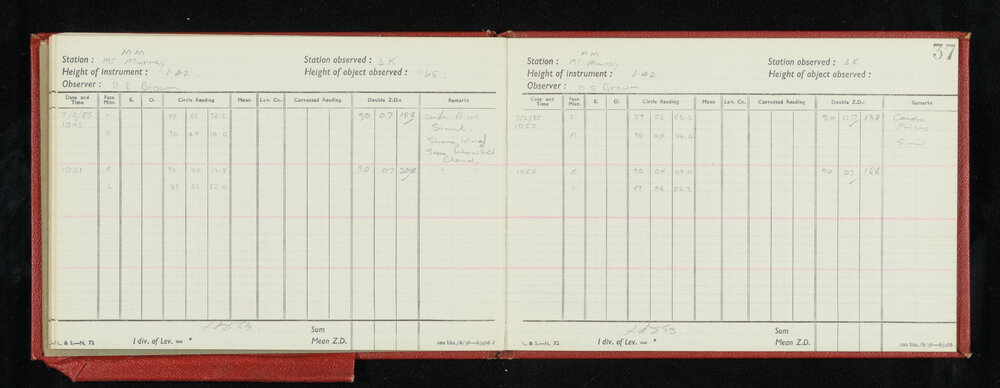 MM
Station : MT Murray
Station observed : ΔK
Height of instrument : 1.42
Height of object observed : 1.65
Observer : D E Brown
Date and Time Face Micr. E. O. Circle Reading Mean Lev. Co. Corrected Reading Double Z.D.s Remarks
7/2/85 L 89 56 56.2 90 07
1045 R 90 04 10.0
Signal
Strong Wind
Some
Cloud
1051 R 90 04 12.8 90 07 20.8
L 89 56 52.0
Sum
1 div. of Lev. = " Mean Z.D.
L. & S.—N. 72
200 bks./6/56—65466 J
37
MM
Station : MT Murray
Station observed : ΔK
Height of instrument : 1.42
Height of object observed :
Observer : D E Brown
Date and Time Face Micr. E. O. Circle Reading Mean Lev. Co. Corrected Reading Double Z.D.s Remarks
7/2/85 L 89 56 52.2 90 07 13.8
1057 R 90 04 06.0 Prisms
Signal
1058 R 90 04 09.0 90 07 16.8
L 89 56 52.2
Sum
1 div. of Lev. = " Mean Z.D.
L. & S.—N. 72
200 bks./6/56—65466 J